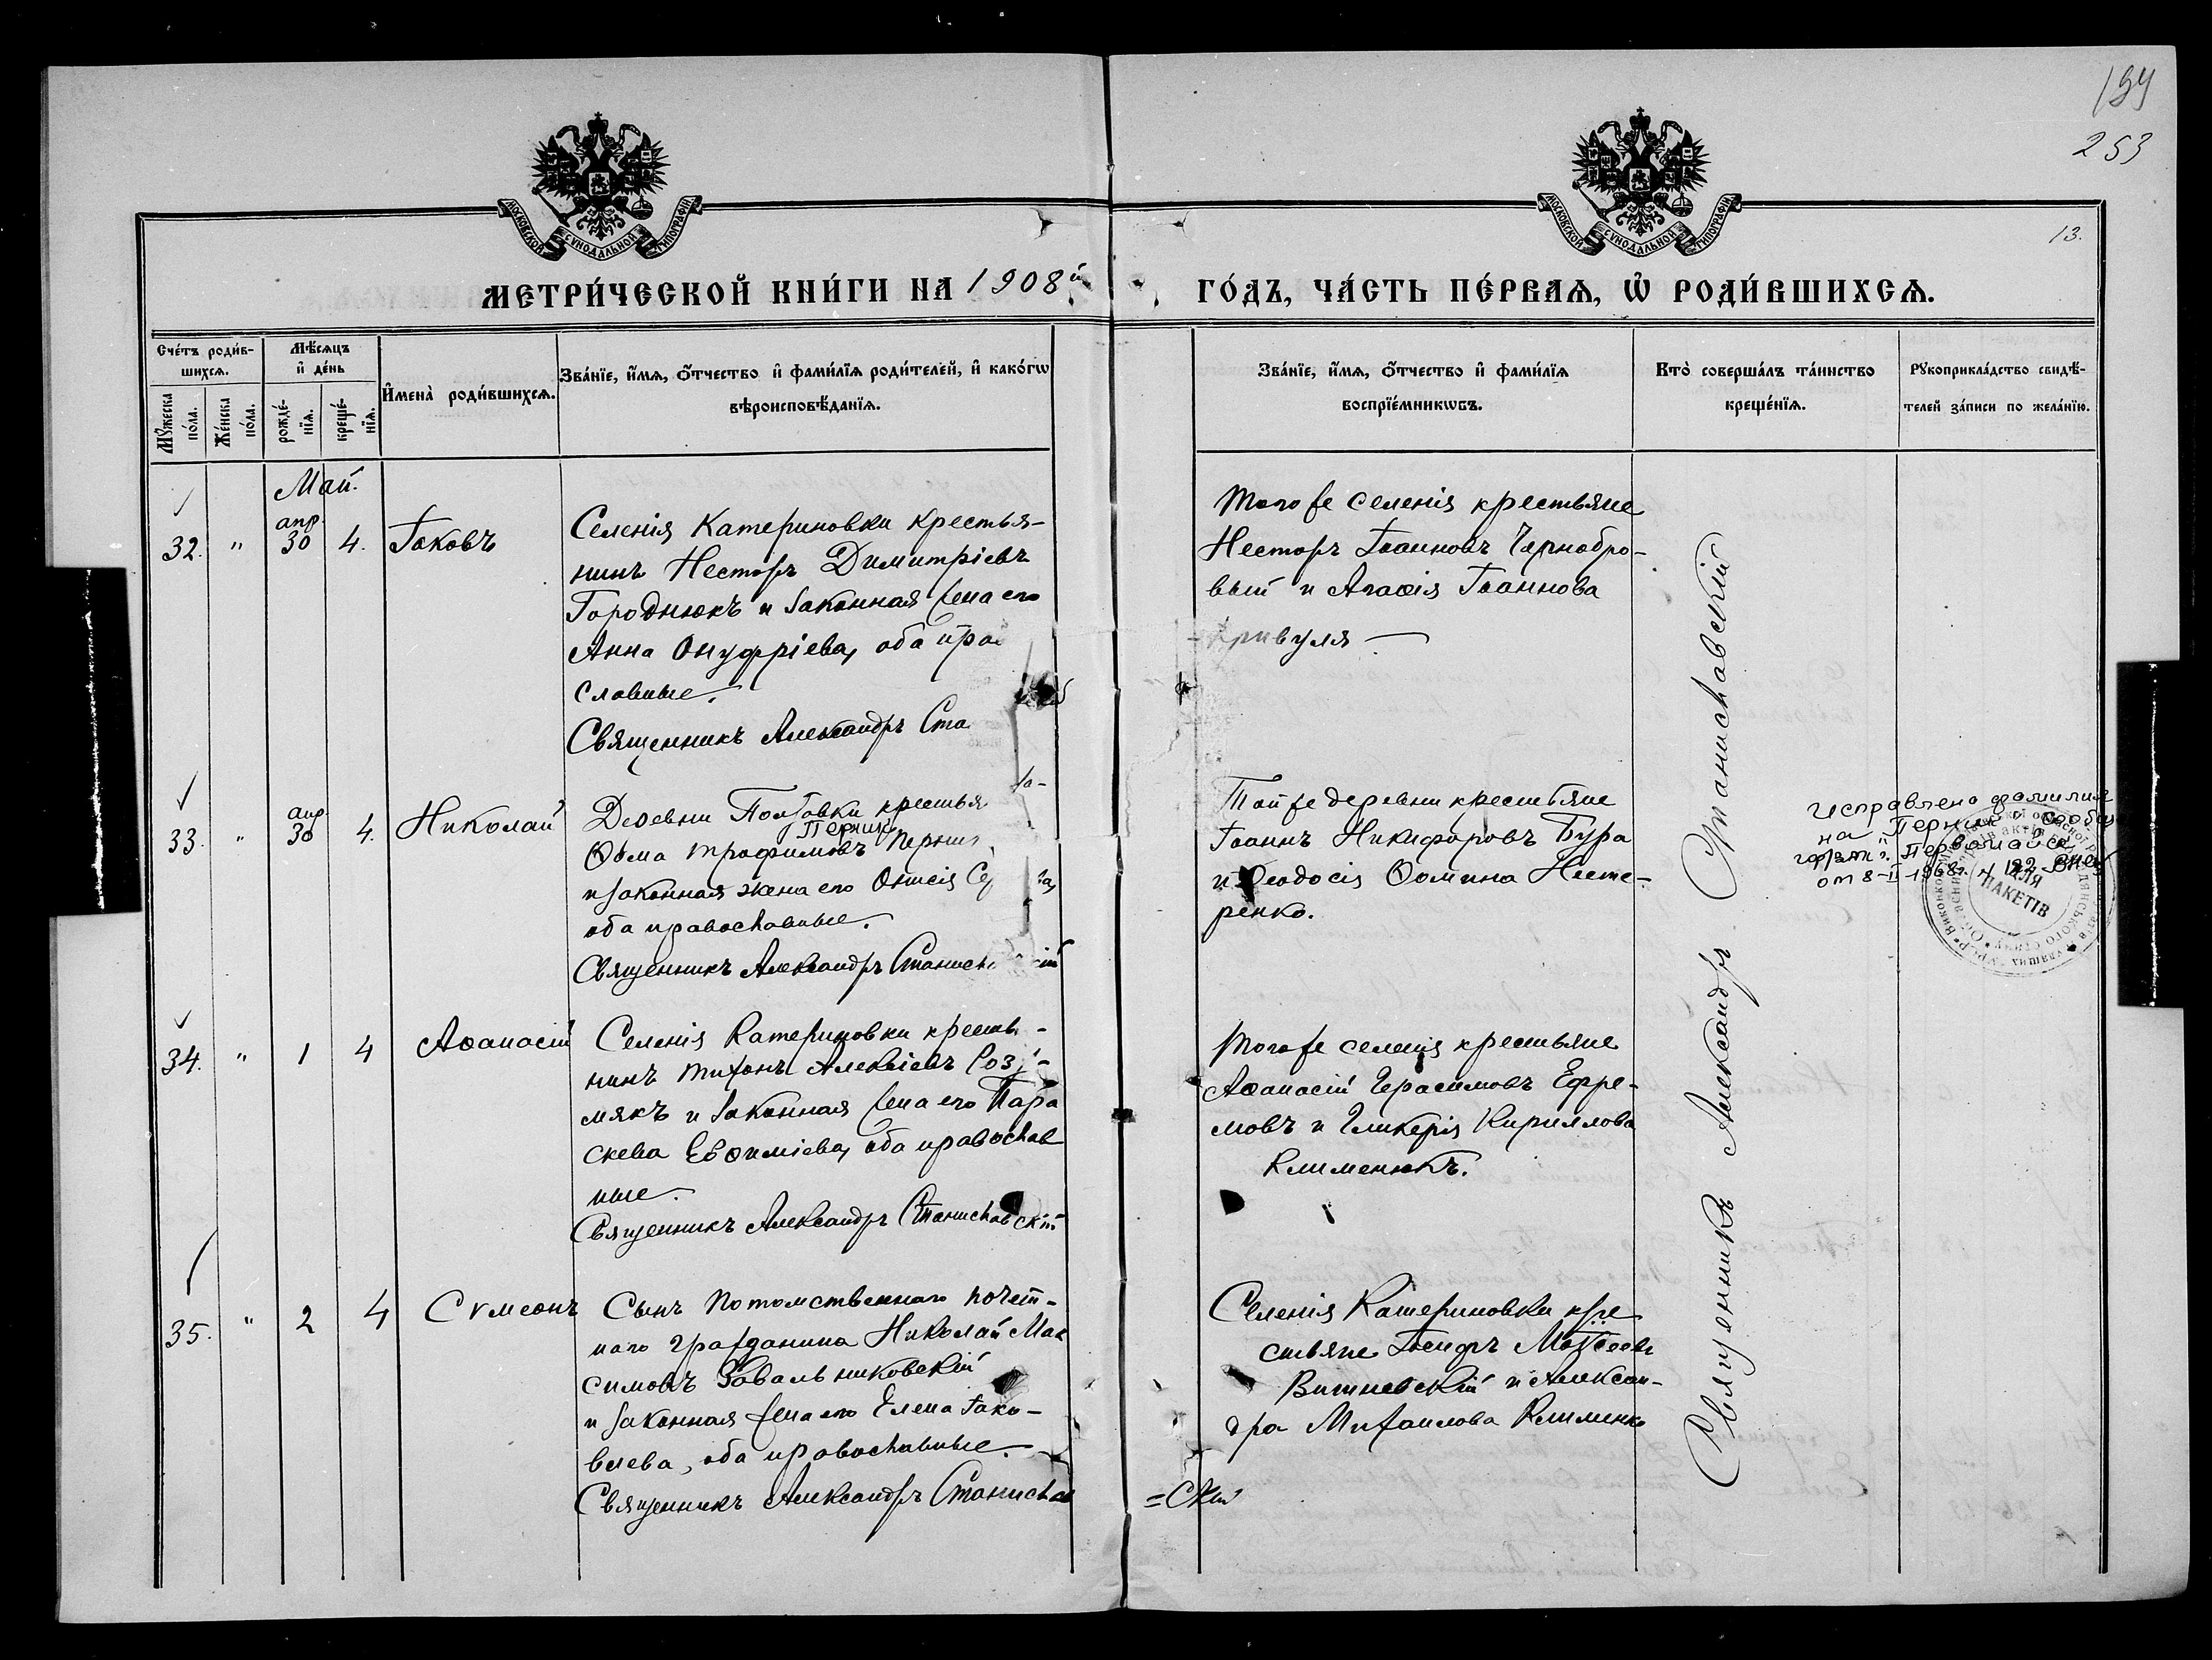 199
253
13.
МОСКОВСКОЙ СѴНОДАЛЬНОЙ ТИПОГРАФІИ
МОСКОВСКОЙ СѴНОДАЛЬНОЙ ТИПОГРАФІИ
МЕТРИ́ЧЕСКОЙ КНИ́ГИ НА 1908й
ГО́ДЪ, ЧА́СТЬ ПЕ́РВАѦ, Ѽ РОДИ́ВШИХСѦ.
Сче́тъ роди́в-
шихсѧ.
Мѣ́сѧцъ
и҆ де́нь
Мꙋ́жеска по́ла.
Же́нска по́ла.
рожде́-нїѧ.
креще́-нїѧ.
И҆мена̀ роди́вшихсѧ.
Зва́нїе, и҆́мѧ, ѻ҆́тчество и҆ фами́лїѧ роди́телей, и҆ како́гѡ
вѣроисповѣ́данїѧ.
Зва́нїе, и҆́мѧ, ѻ҆́тчество и҆ фами́лїѧ
воспрїе́мникѡвъ.
Кто̀ соверша́лъ та́инство
креще́нїѧ.
Рꙋкоприкла́дство свидѣ́-
телей за́писи по жела́нїю.
Май.
32. " апр. 30 4. Іаковъ
Селенія Катериновки крестья-
нинъ Несторъ Димитріевъ
Городнюкъ и законная жена его
Анна Онуфріева, оба пра
славные.
Священникъ Александръ Ста
Того же селенія крестьяне
Несторъ Іоанновъ Чернобро-
вый и Агаѳія Іоаннова
Кривуля
33. " апр 30 4. Николай
Деревни Полтавки крестья
Перник
Ѳома Трофимовъ
и законная жена его Онисія
оба православные.
Священникъ Александръ Станисл
Той же деревни крестьяне
Іоаннъ Никифоровъ Бура
и Ѳеодосія Ѳомина Несте-
ренко.
Исправлено фамилия
на Перник сообщ
горзагс г. Первомайск
от 8-II-1968г. N 182.
ДЛЯ
ПАКЕТІВ
34. " 1 4 Аѳанасій
Селенія Катериновки крестья-
нинъ Тихонъ Алексіевъ
мякъ и законная жена его Пара
скева Евѳиміева, оба православ
ные.
Священникъ Александръ Станиславскій
Того же селенія крестьяне
Аѳанасій Герасимовъ Ефре-
мовъ и Гликерія Кириллова
Клименюкъ.
35. " 2 4 Сѵмеонъ
Сынъ Потомственнаго почет-
наго гражданина Николай Мак
симовъ Ковальниковскій
и законная жена его Елена Іако-
влева, оба православные.
Священникъ Александръ Станислав
=скій
Селенія Катериновки кре
стьяне Іосифъ Моѵсеевъ
Вишневскій и Алексан-
дра Михаилова Клименко
Священникъ Александръ Станиславскій